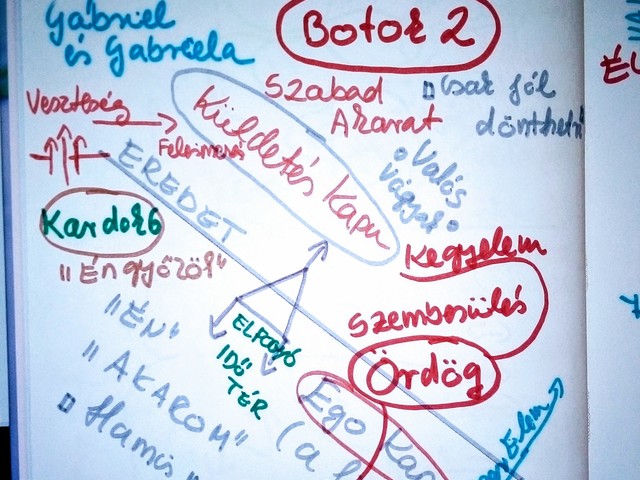 Gábriel
és Gabriela
Botok 2
Szabad
Akarat
Csak jól
dönthetni
Veszteség
Felismerés
Küldetés Kapu
Valós
vágyak
EREDET
Kardok 6
"Én győzök"
Kegyelem
Szembesülés
Ördög
"ÉN"
"AKAROM"
Hamis
ELFOGYÓ
IDŐ
TÉR
Ego
(a